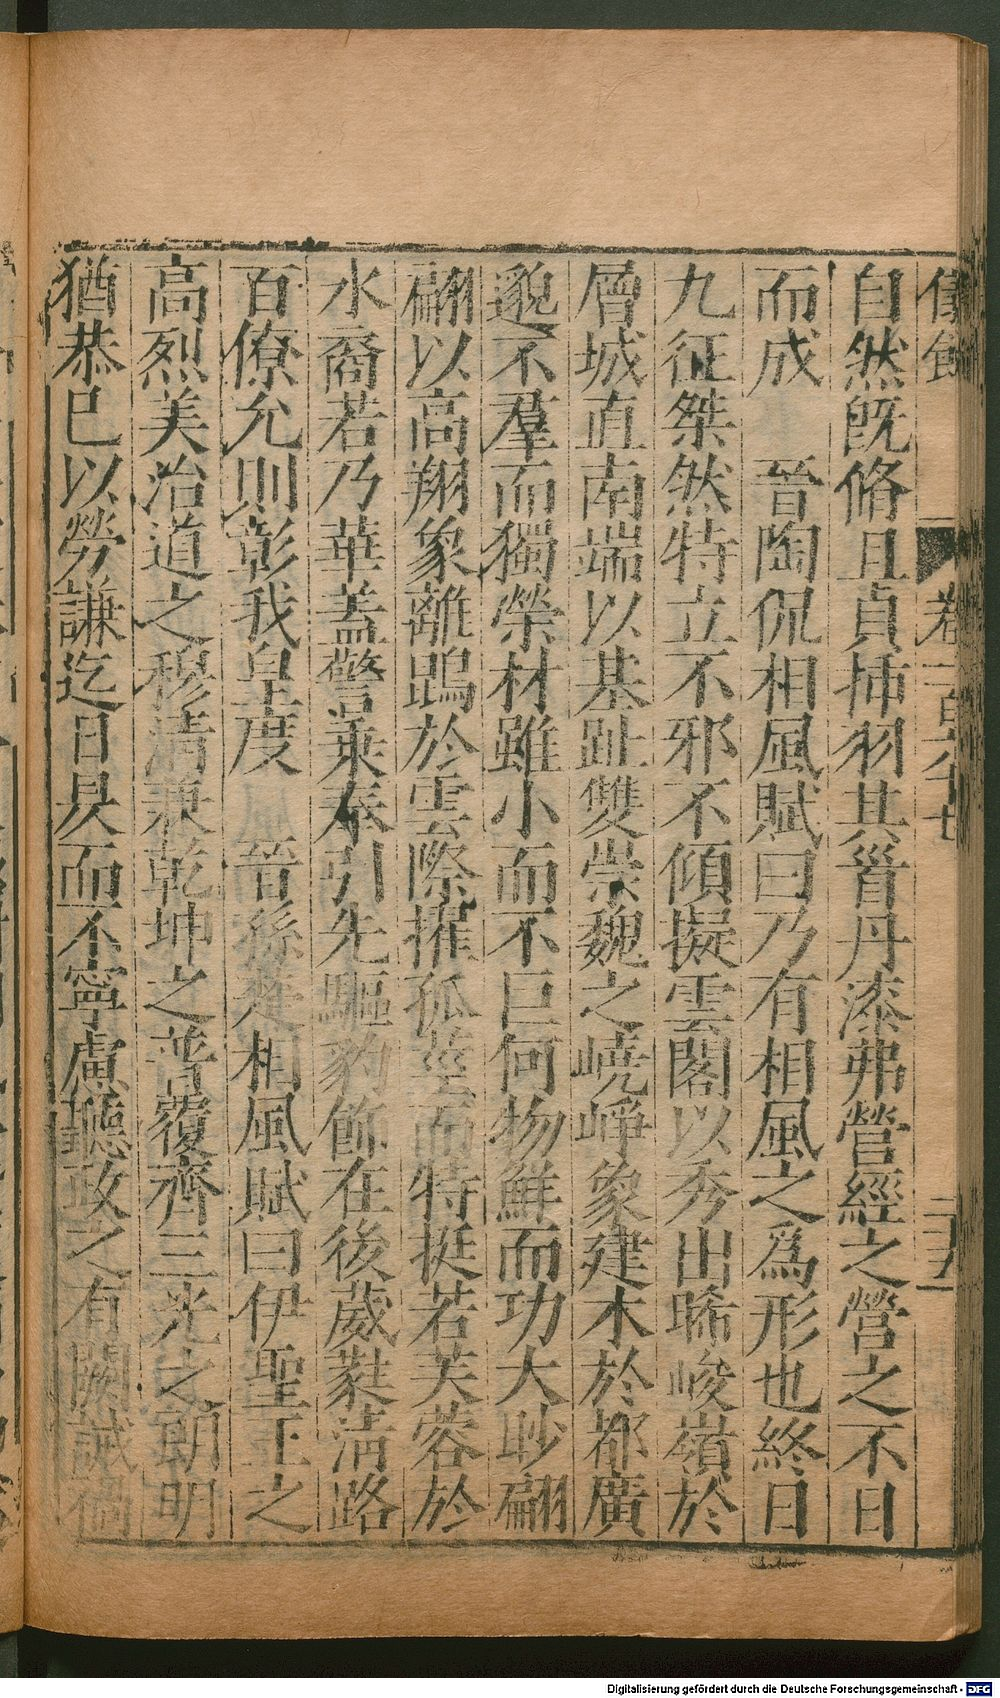 儀飾 卷一百六十七 二十五
自然旣脩且貞揷羽其脊丹漆弗營經之營之不日
而成 晉陶侃相風賦曰乃有相風之爲形也終日
九征桀然特立不邪不傾擬雲閣以秀出晞峻嶺於
層城直南端以基趾雙崇魏之嶢崢象建木於都廣
邈不羣而獨榮材雖小而不巨何物鮮而功大眇翩
翩以高翔象離鵾於雲際擢孤莖而特挺若芙蓉於
水裔若乃華蓋警乘奉引先驅豹飾在後葳蕤淸路
百僚允則彰我皇度 晉孫楚相風賦曰伊聖王之
高烈美治道之穆淸兼乾坤之普覆齊三光之朗明
猶恭巳以勞謙迄日昃而不寧慮聽政之有闕誡
Digitalisierung gefördert durch die Deutsche Forschungsgemeinschaft - DFG